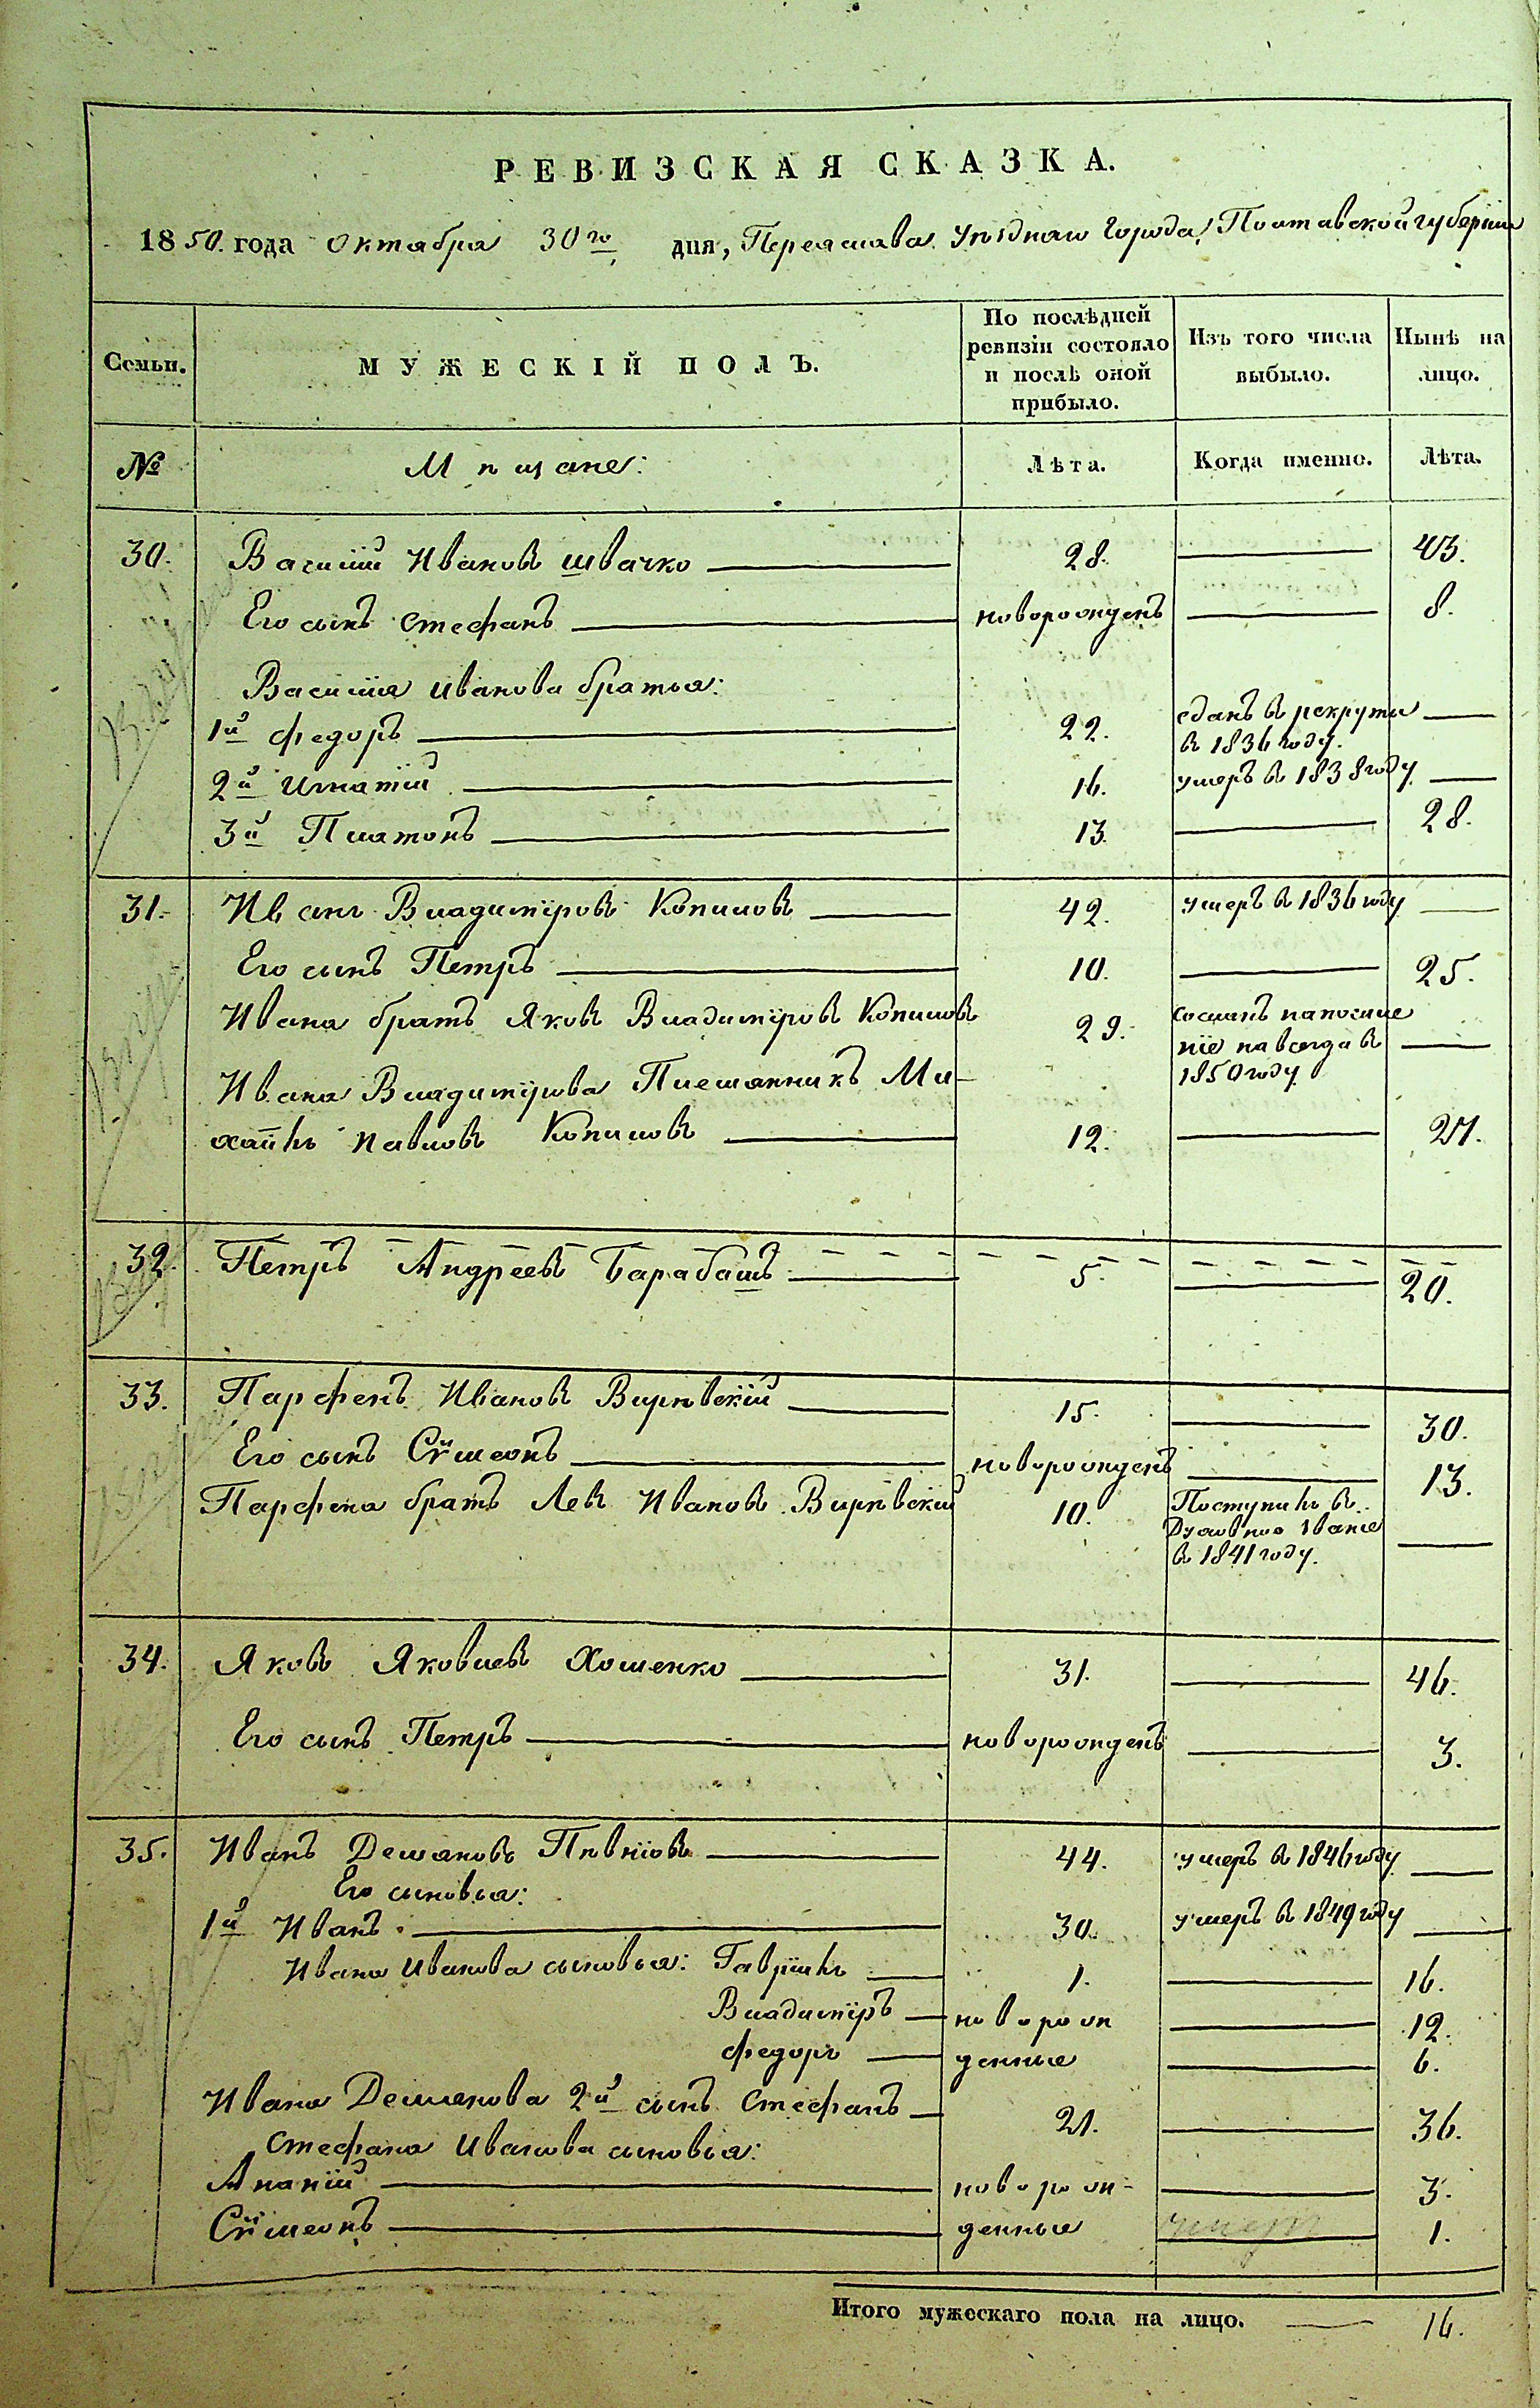 РЕВИЗСКАЯ СКАЗКА.
1850. года Октября 30го дня, Переяслава Уѣзднаго Города, Полтавской губерніи
Семьи.
МУЖЕСКІЙ ПОЛЪ.
По послѣдней ревизіи состояло и послѣ оной прибыло.
Изъ того числа выбыло.
Нынѣ на лицо.
№ Мѣщане: Лѣта. Когда именно. Лѣта.
30. Василій Ивановъ Швачко 28. 43.
Его сынъ Стефанъ новорожденъ 8.
Василія Иванова братья:
1й Федоръ 22. сданъ въ рекруты
въ 1836 году.
2й Игнатій 16. умеръ въ 1838 году
3й Платонъ 13. 28.
31. Иванъ Владиміровъ Копиловъ 42. умеръ въ 1836 году
Его сынъ Петръ 10. 25.
Ивана братъ Яковъ Владиміровъ Копиловъ 29. Сосланъ на поселе
ніе навсегда въ
1850 году
Ивана Владимірова Племянникъ Ми-
хаилъ Павловъ Копиловъ 12. 27.
32. Петръ Андреевъ Барабашъ 5. 20.
33. Парфенъ Ивановъ Вирѣвскій 15. 30.
Его сынъ Сѵмеонъ новорожденъ 13.
Парфена братъ Левъ Ивановъ Вирѣвскій 10. Поступилъ въ
Духовное званіе
въ 1841 году.
34. Яковъ Яковлевъ Хоменко 31. 46.
Его сынъ Петръ новорожденъ 3.
35. Иванъ Демяновъ Пѣвнювъ 44. умеръ въ 1846 году
Его сыновья:
1й Иванъ 30. умеръ въ 1849 году
Ивана Иванова сыновья: Гавріилъ 1. 16.
Владиміръ новорож 12.
Федоръ денные 6.
Ивана Демянова 2й сынъ Стефанъ 21. 36.
Стефана Иванова сыновья:
Ананій новорож- 3.
Сѵмеонъ денные умер 1.
Итого мужескаго пола на лицо. 16.